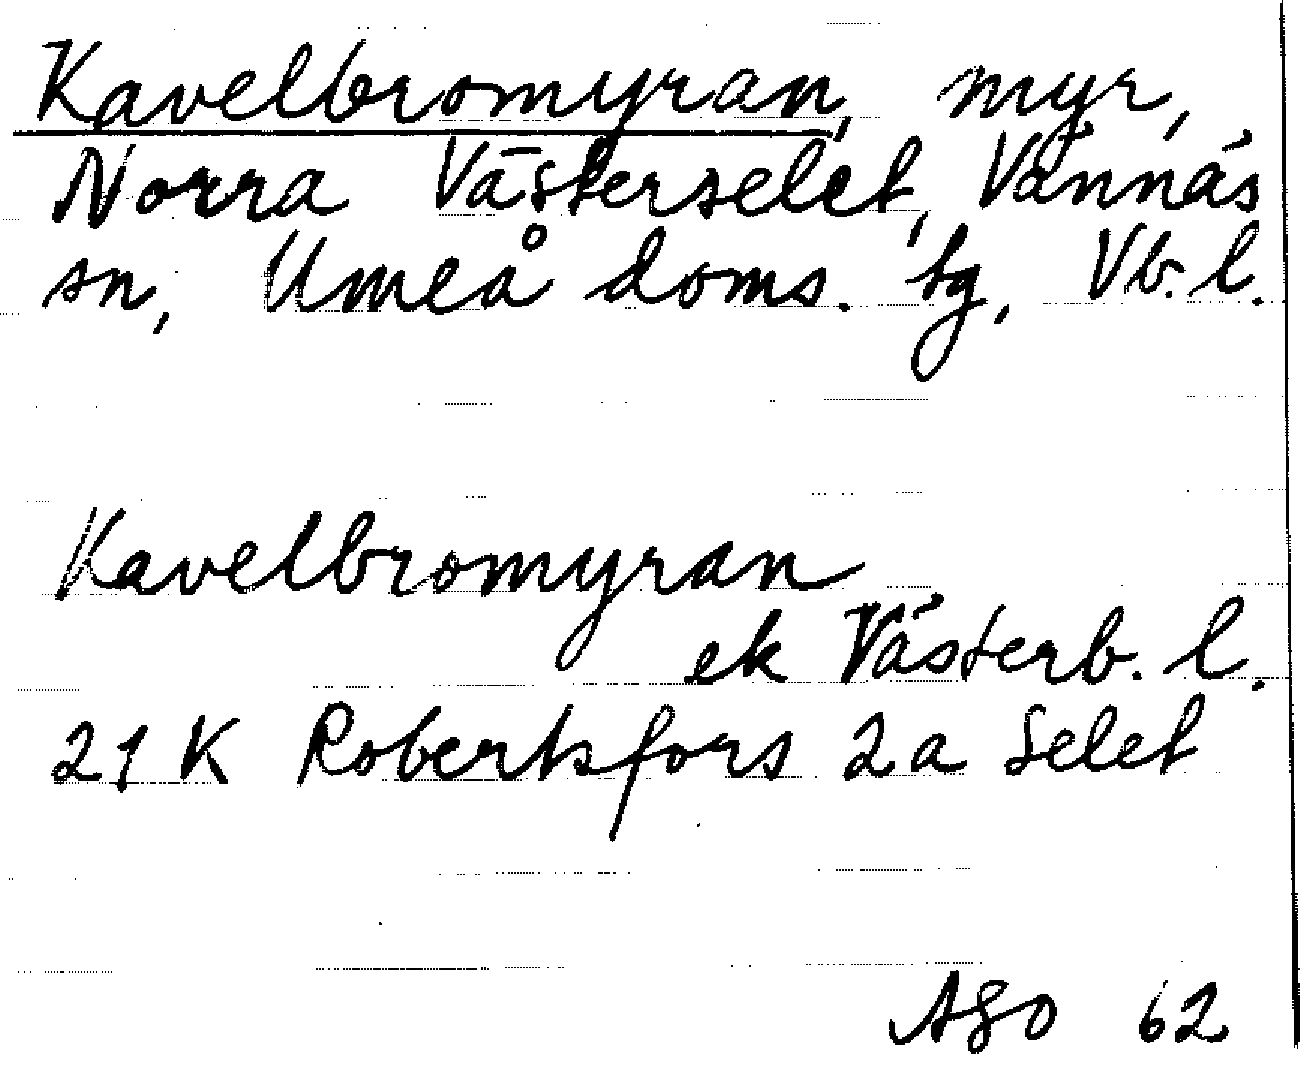 Kavelbromyran, myr,
Norra Västerselet, Vännäs
sn, Umeå doms. tg, Vb. l.
Kavelbromyran
ek Västerb. l.
21 K Robertsfors 2a Selet
ASO 62